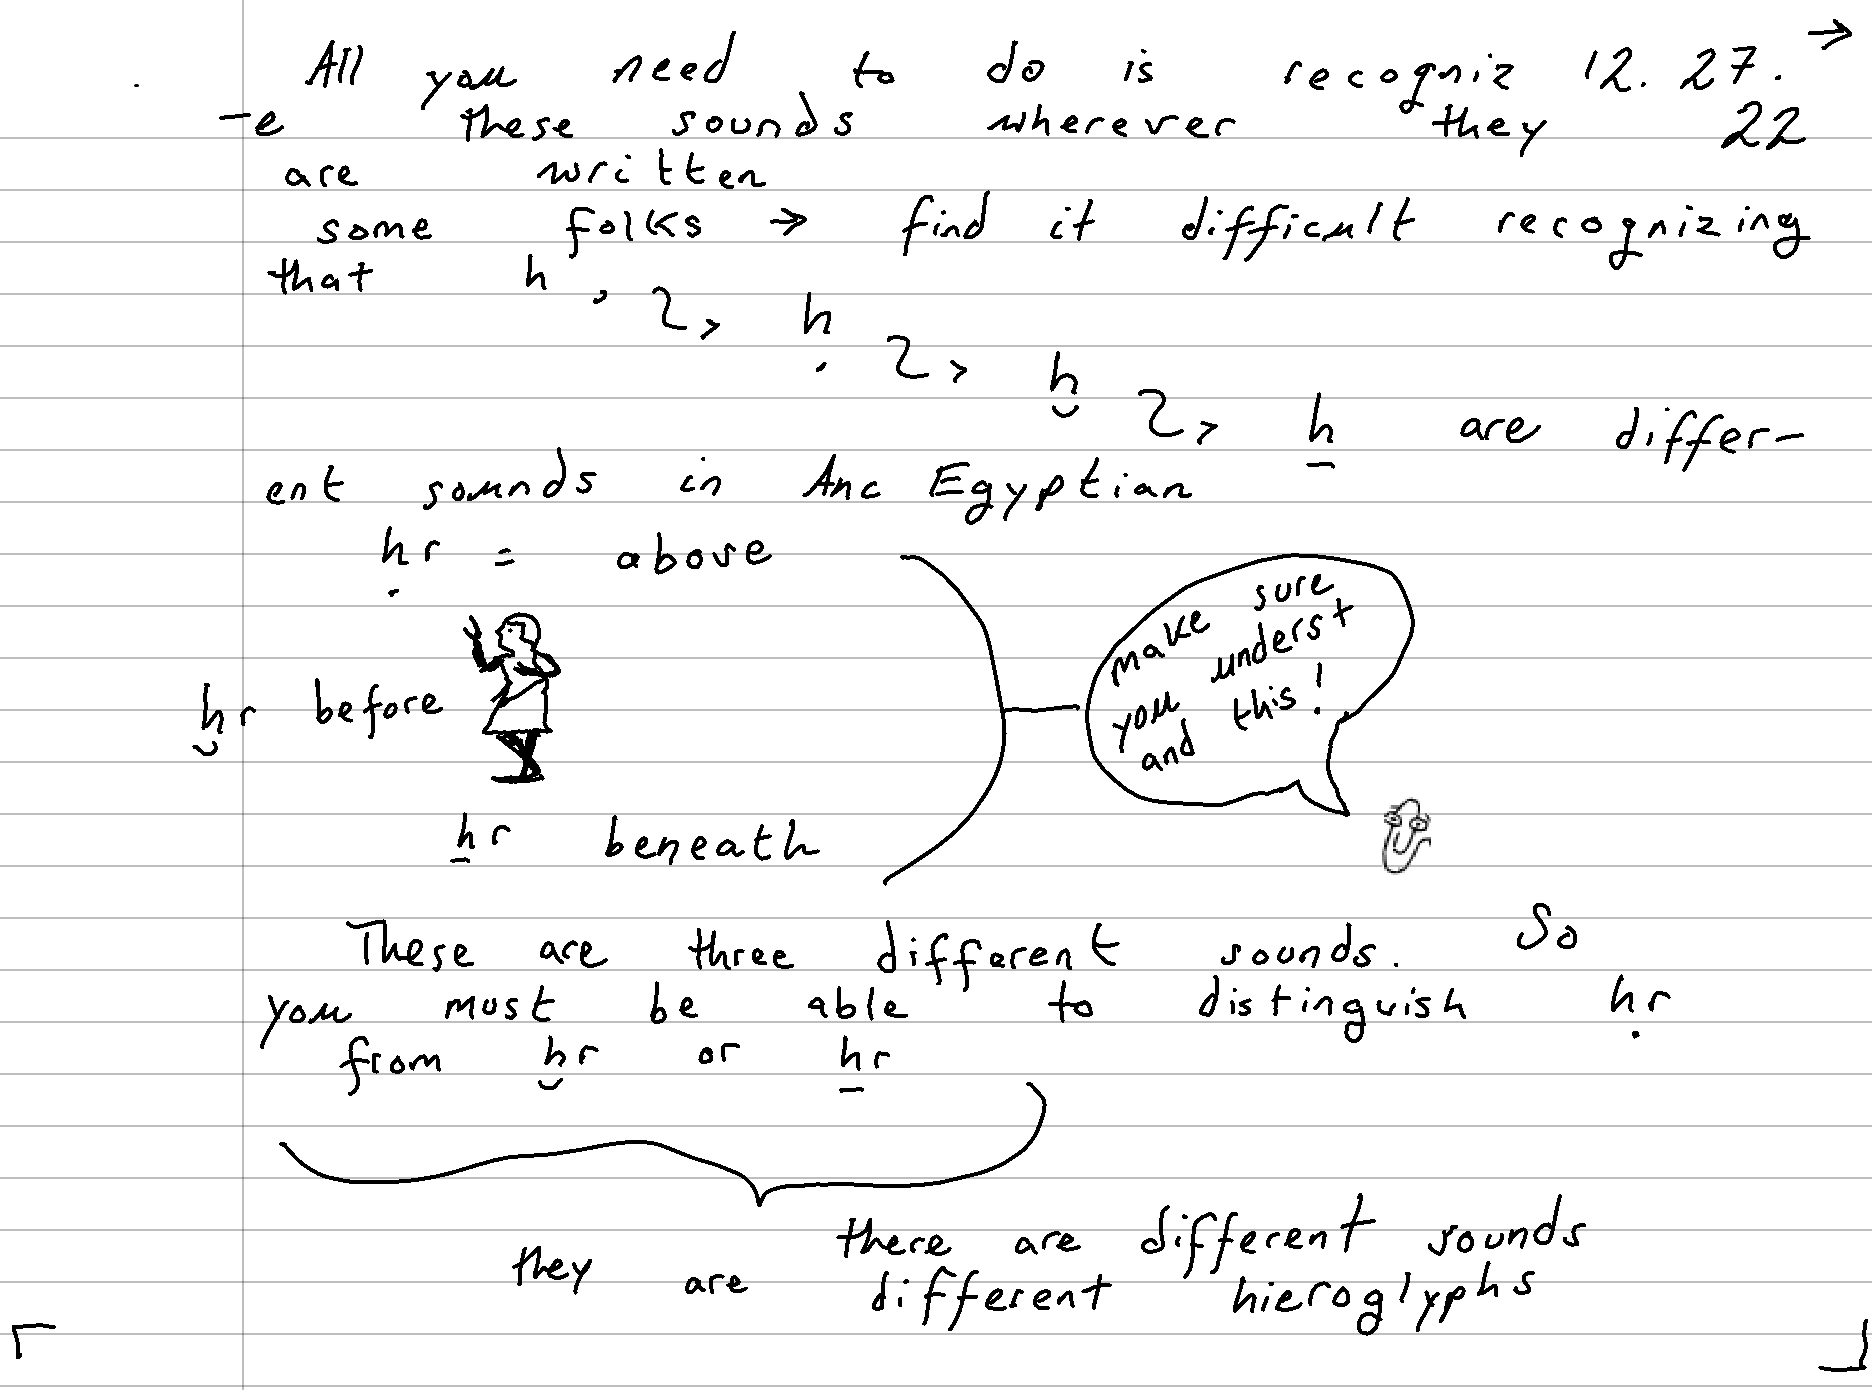 All you need to do is recogniz 12. 27. →
-e these sounds wherever they 22
are written
some folks → find it difficult recognizing
that h , 2, ḥ 2, ḫ 2, ẖ are differ-
ent sounds in Anc Egyptian
ḥr = above
ḫr before
ẖr beneath
make sure
you underst
and this!
These are three different sounds. So
you must be able to distinguish ḥr
from ḫr or ẖr
there are different sounds
they are different hieroglyphs